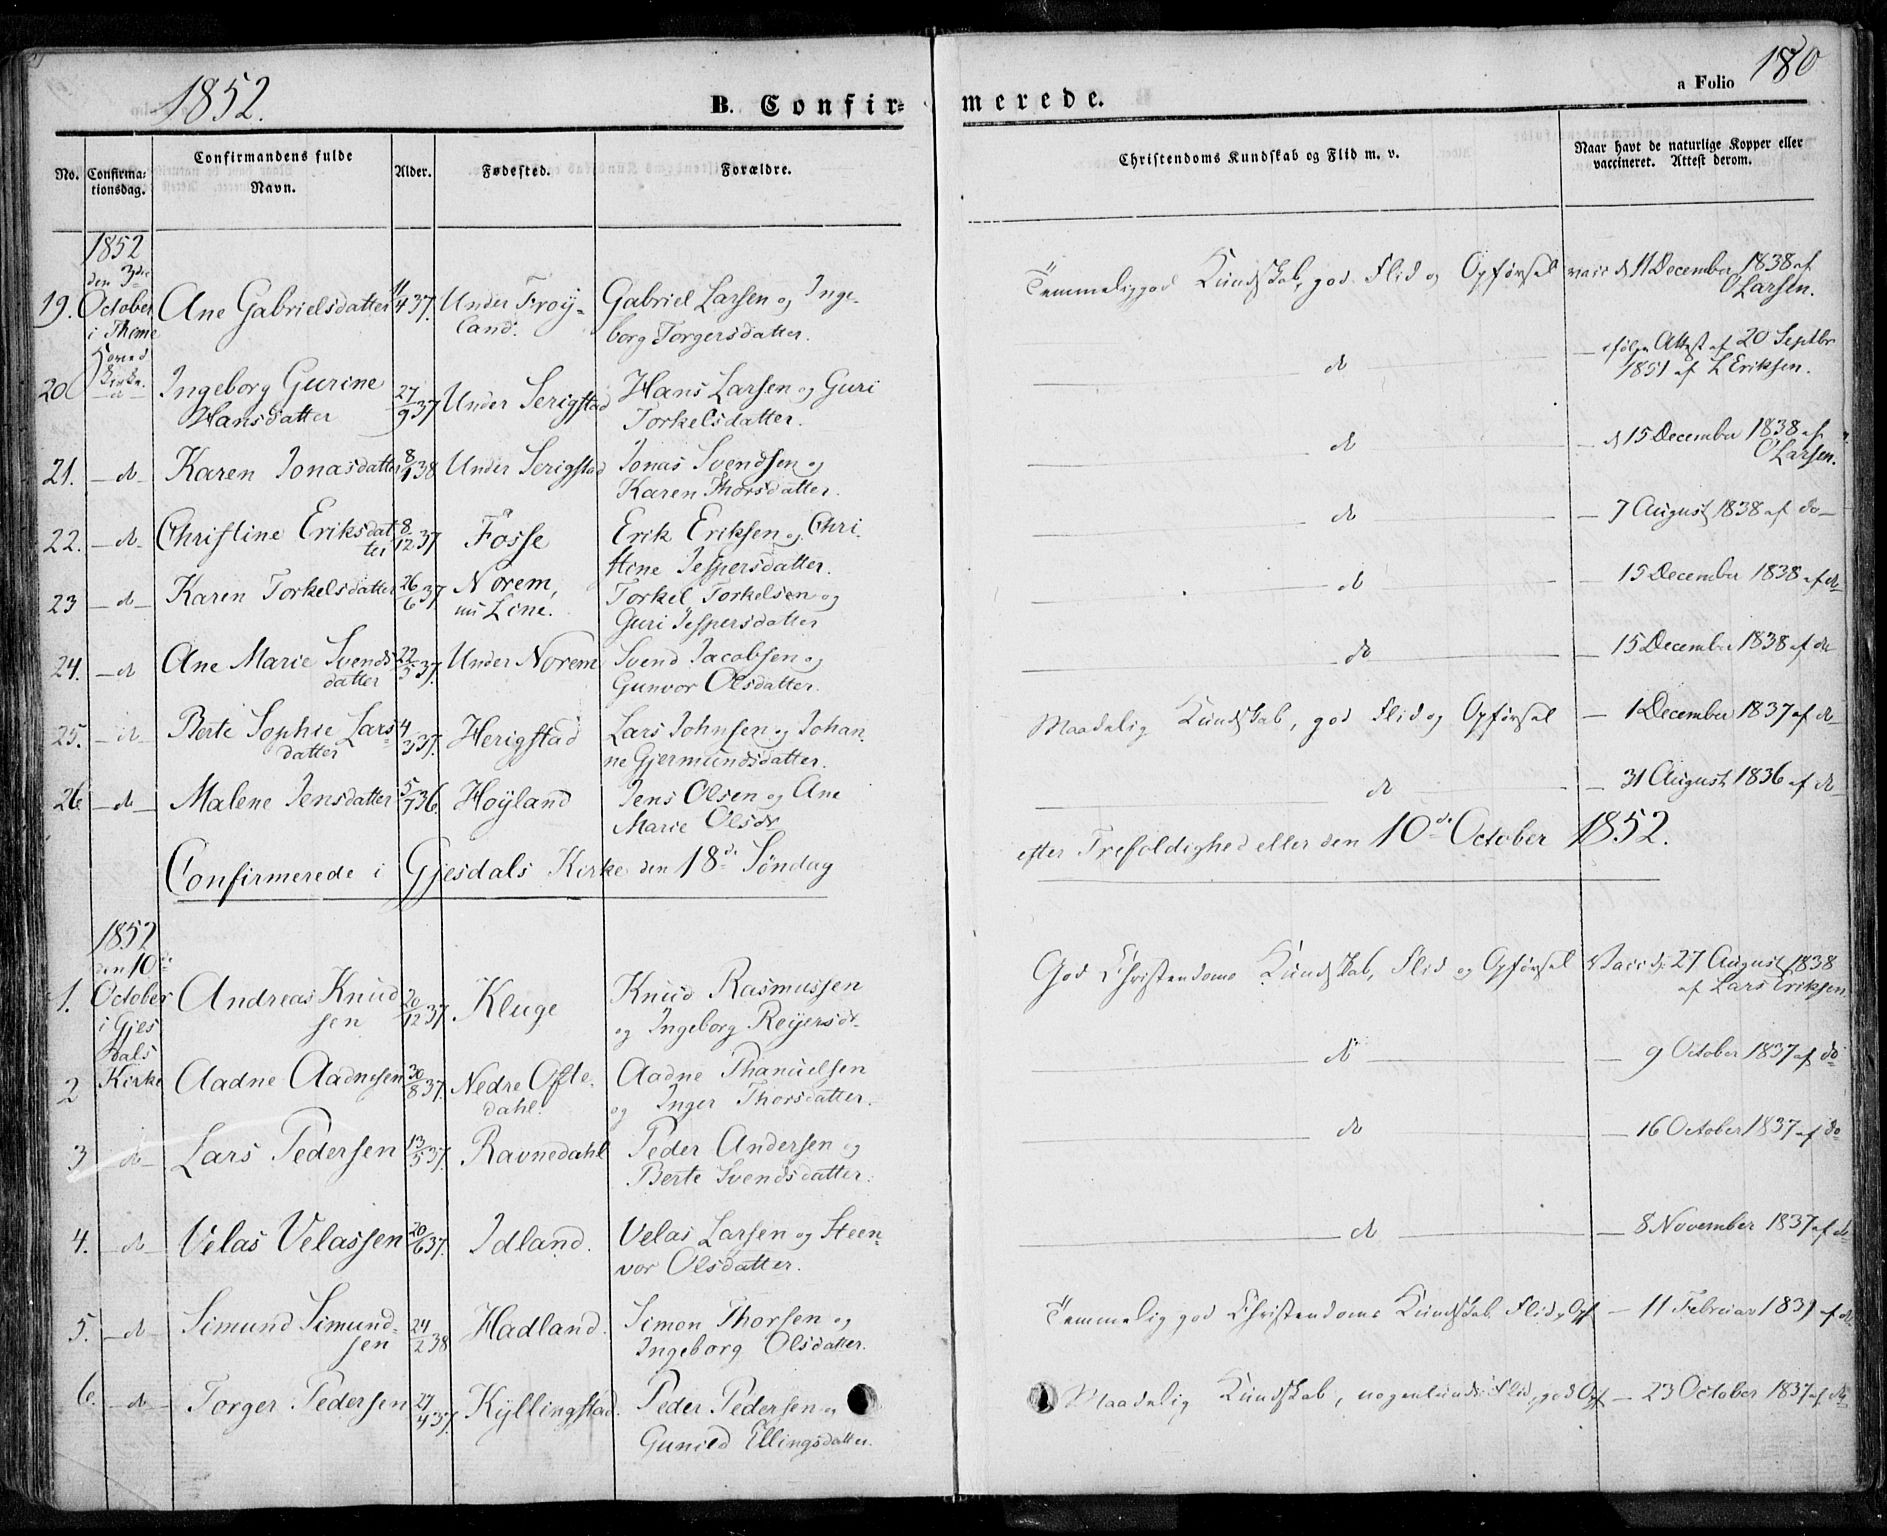 1852.
B. Confir-
merede.
a Folio
180
No.
Confirma-
tionsdag.
Confirmandens fulde
Navn.
Alder.
Fødested.
Forældre.
Christendoms Kundskab og Flid m. v.
Naar havt de naturlige Kopper eller
vaccineret. Attest derom.
1852
den 3die
October
i Thime
Hoved
Kirke.
19. Ane Gabrielsdatter 11/4 37. Under Frøy- Gabriel Larsen og Inge-
land. borg Torgersdatter.
Temmelig god Kundskab, god Flid og Opførsel vacc d 11 December 1838 af
O Larsen.
20 d Ingeborg Gurine 27/9 37 Under Serigstad Hans Larsen og Guri
Hansdatter Torkelsdatter.
do ifølge Attest af 20 Septbr
1851 af L Eriksen.
21. do Karen Jonasdatter 8/1 38 Under Serigstad Jonas Svendsen og
Karen Thorsdatter.
do d 15 December 1838 af
O Larsen.
22. do Christine Eriksdat 8/12 37 Fosse Erik Eriksen og Chri
ter stine Jespersdatter.
do 7 August 1838 af do
23 do Karen Torkelsdatter 26/6 37 Norem, Torkel Torkelsen og
nu Line. Guri Jespersdatter
do 15 December 1838 af do
24. do Ane Marie Svends 22/5 37. Under Norem Svend Jacobsen og
datter Gunvor Olsdatter.
do 15 December 1838 af do
25. do Berte Sophie Lars- 4/3 37. Herigstad Lars Johnsen og Johan
datter ne Gjermundsdatter.
Maadelig Kundskab, god Flid og Opførsel 1 December 1837 af do
26 do Malene Jensdatter 5/7 36. Høyland Jens Olsen og Ane
Marie Olsdr
do 31 August 1836 af do
Confirmerede i Gjesdals Kirke den 18de Søndag
efter Trefoldighed eller den 10de October 1852.
1852
den 10de
October
i Gjes
dals
Kirke
1. Andreas Knud 20/12 37. Kluge Knud Rasmussen
sen og Ingeborg Reijersdr
God Christendoms Kundskab, Flid og Opførsel Vacc d. 27 August 1838
af Lars Eriksen.
2 Aadne Aadnesen 30/8 37. Nedre Ofte- Aadne Thanuelsen
dahl. og Inger Thorsdatter.
do 9 October 1837 af do
3 do Lars Pedersen 13/5 37. Ravnedahl Peder Andersen og
Berte Svendsdatter.
do 16 October 1837 af do
4. do Velas Velassen 20/6 37. Idland. Velas Larsen og Steen-
vor Olsdatter.
do 8 November 1837 af do
5. do Simund Simund- 24/2 38 Hadland. Simon Thorsen og
sen Ingeborg Olsdatter.
Temmelig god Christendoms Kundskab Flid og Opf 11 Februar 1839 af do
6. do Torger Pedersen 27/4 37. Kyllingstad. Peder Pedersen og
Gunild Ellingsdatter.
Maadelig Kundskab, nogenlunde Flid, god Opf 23 October 1837 af do